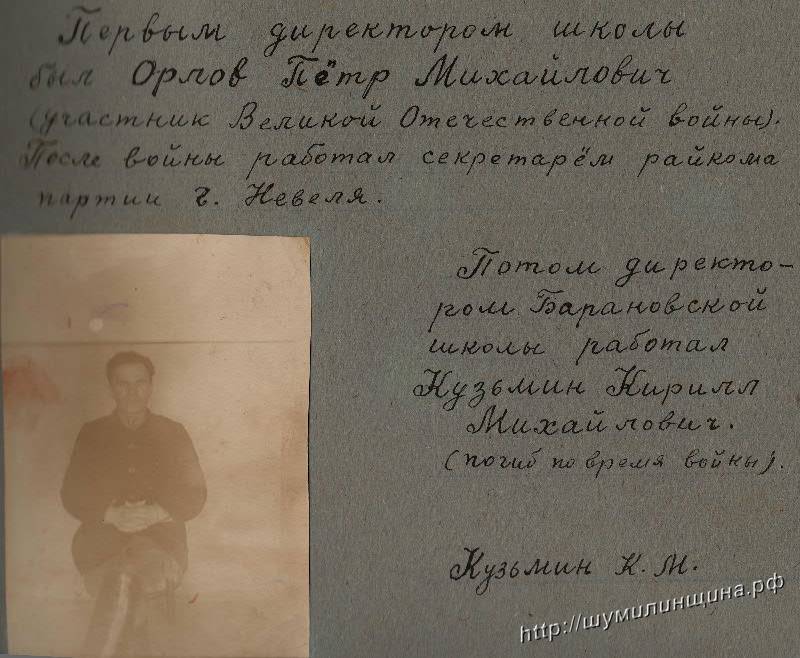 Первым директором школы
был Орлов Пётр Михайлович
(участник Великой Отечественной войны).
После войны работал секретарём райкома
партии г. Невеля.
Потом директо-
ром Барановской
школы работал
Кузьмин Кирилл
Михайлович.
(погиб во время войны).
Кузьмин К. М.
http://шумилинщина.рф